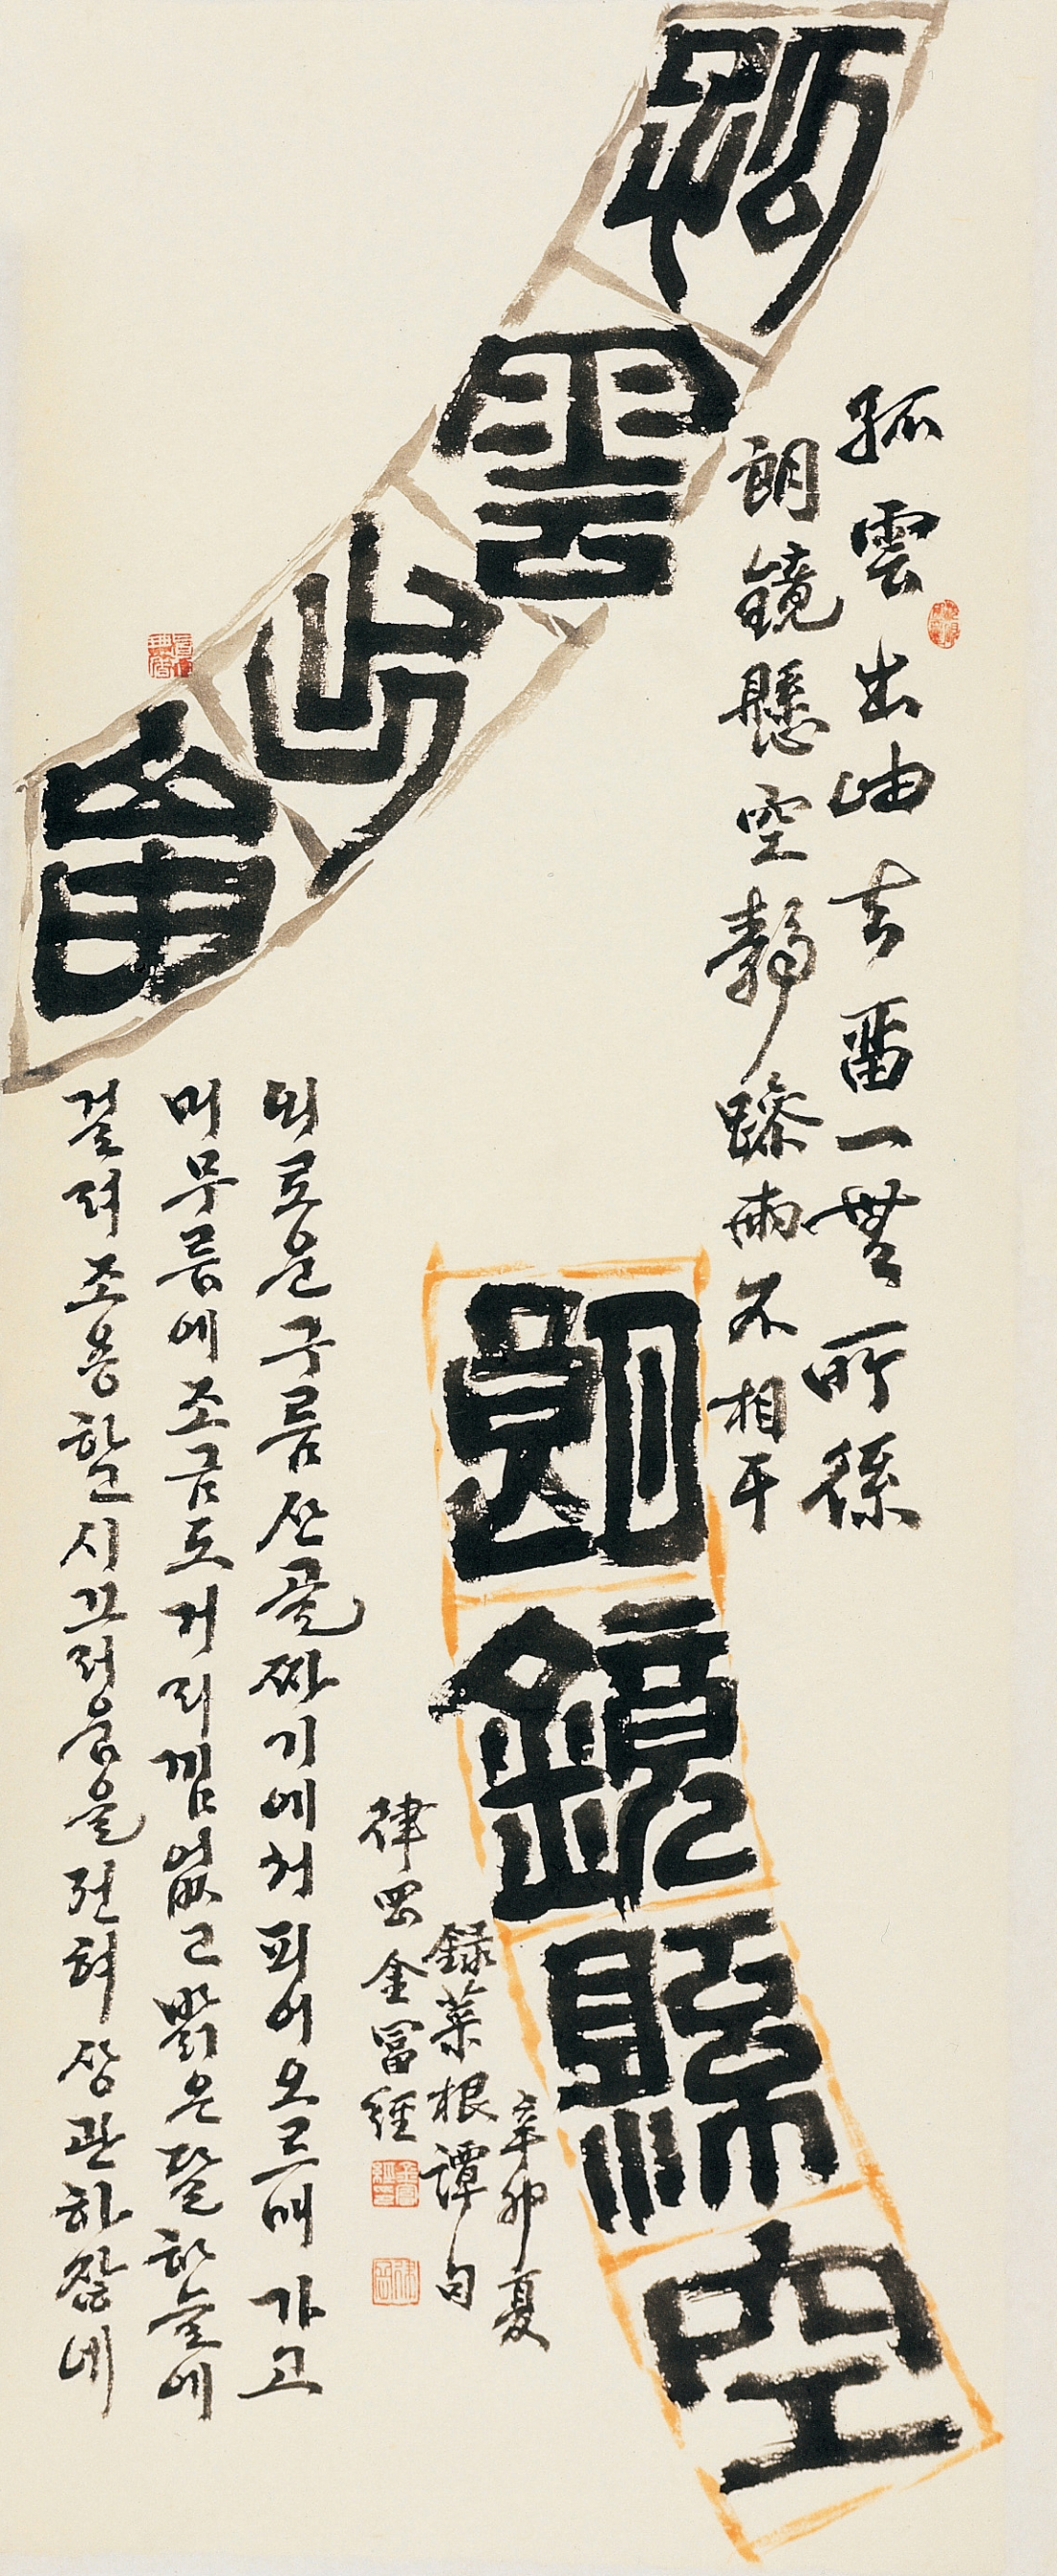 孤雲出岫
朗鏡懸空
孤雲出岫去留一無所係
朗鏡懸空靜躁兩不相干
외로운구름산골짜기에서피어오르매가고
머무름에조금도거리낌없고밝은달하늘에
걸려조용함시끄러움을전혀상관하잖네
辛卯夏
錄菜根譚句
律罡金富經